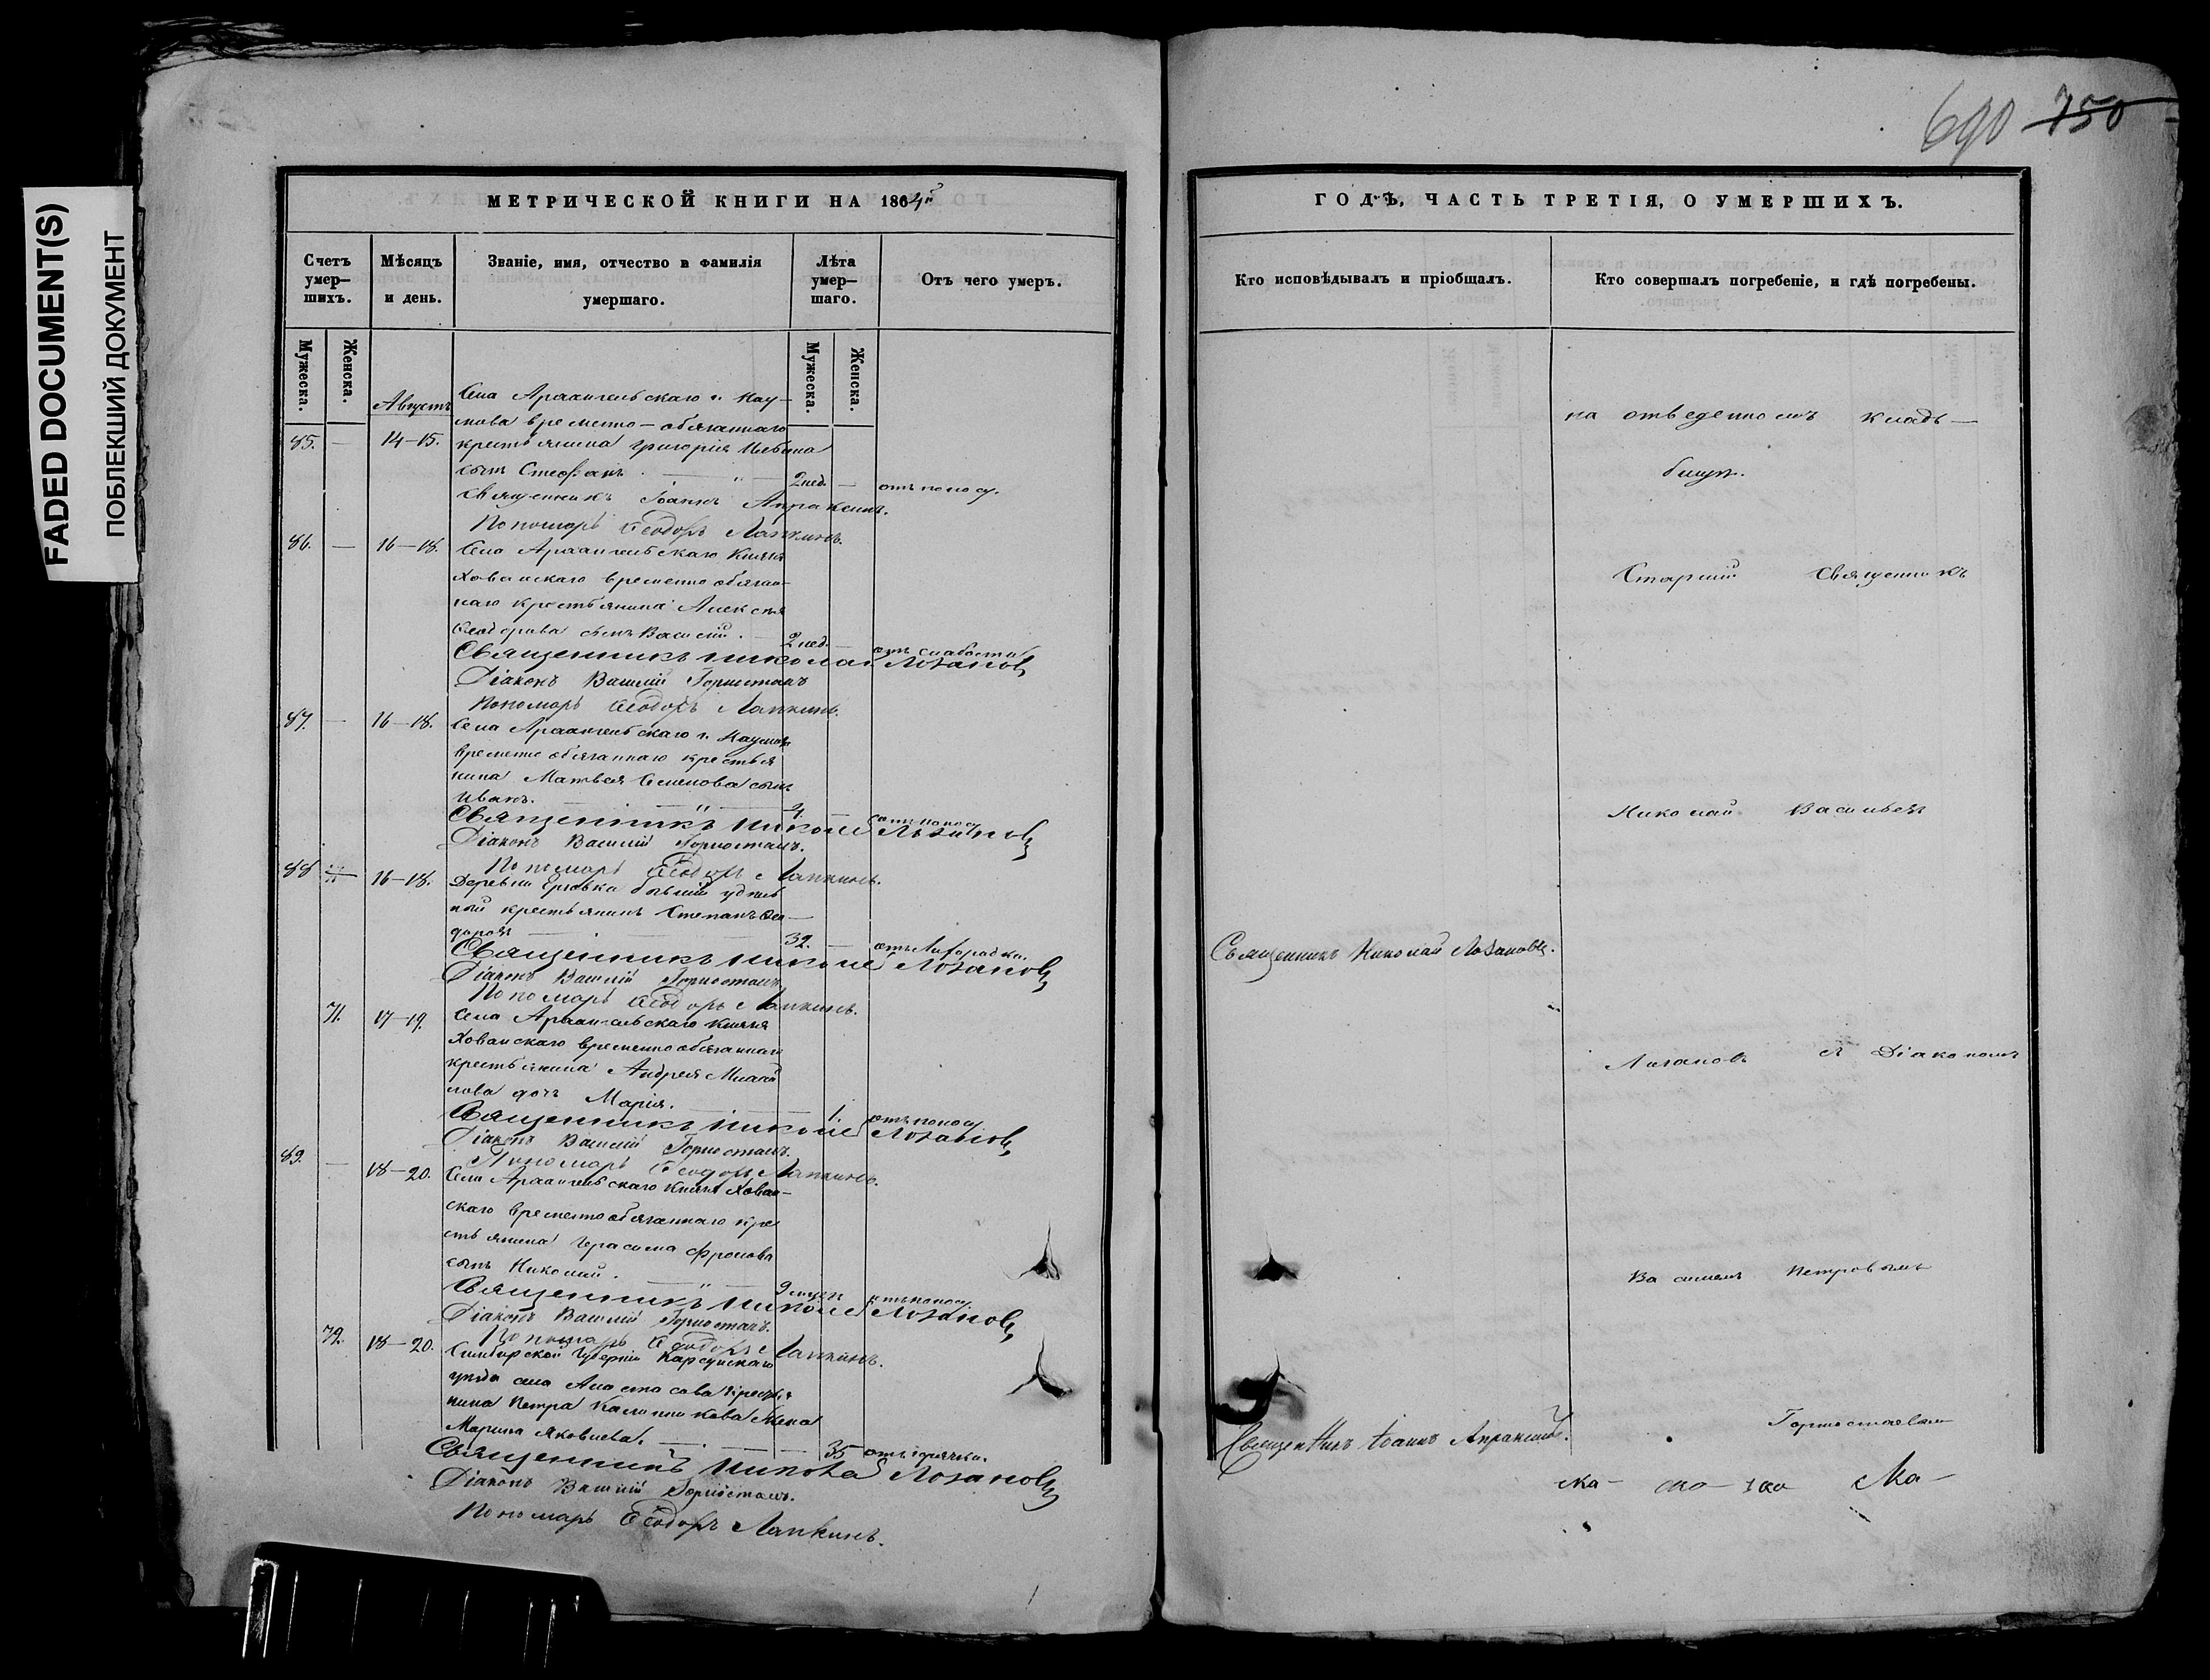 FADED DOCUMENT(S)
ПОБЛЕКШИЙ ДОКУМЕНТ
МЕТРИЧЕСКОЙ КНИГИ НА 1864й
Счетъ умер—шихъ.
Мѣсяцъ и день.
Званіе, имя, отчество и фамилія умершаго.
Лѣта умер—шаго.
Отъ чего умеръ.
Мужеска.
Женска.
Мужеска.
Женска.
Августъ
Села Архангельскаго г. Нау—
мова временно-обязаннаго
85. — 14-15. крестьянина Григорія Ильина
сынъ Стефанъ. — 2 нед. — отъ поносу.
Священникъ Іоаннъ Апраксинъ.
Пономарь Ѳеодоръ Лапкинъ.
86. — 16-18. Села Архангельскаго Князя
Хованскаго временно обязан—
наго крестьянина Алексея
Ѳеодорова сынъ Василій. — 2 нед. — отъ слабости
Священникъ Николай Лозановъ
Діаконъ Василій Горностаевъ
Пономарь Ѳеодоръ Лапкинъ.
87. — 16-18. Села Архангельскаго г. Наумова
временно обязаннаго крестья
нина Матвея Семенова сынъ
Иванъ. — отъ поносу
Священникъ Николай Лозановъ
Діаконъ Василій Горностаевъ.
Пономарь Ѳеодоръ Лапкинъ.
88 16-18. Деревни бывшій удель
ный крестьянинъ Степанъ Ѳео—
доровъ — 32. — отъ лихорадки.
Священникъ Николай Лозановъ
Діаконъ Василій Горностаевъ
Пономарь Ѳеодоръ Лапкинъ.
71. 17-19. Села Архангельскаго Князя
Хованскаго временно обязаннаго
крестьянина Андрея Михай
лова дочь Марія. — 1. отъ поносу
Священникъ Николай Лозановъ
Діаконъ Василій Горностаевъ.
Пономарь Ѳеодоръ Лапкинъ.
89. — 18-20. Села Архангельскаго Князя Хован—
скаго временно обязаннаго кре
стьянина Герасима Фролова
сынъ Николай. — 9 отъ поносу
Священникъ Николай Лозановъ
Діаконъ Василій Горностаевъ.
Пономарь Ѳеодоръ Лапкинъ.
72. 18-20. Симбирской Губерніи Карсунскаго
уезда села крестья
нина Петра жена
Марина Яковлева. — 35 отъ горячки.
Священникъ Николай Лозановъ
Діаконъ Василій Горностаевъ.
Пономарь Ѳеодоръ Лапкинъ.
690 750
ГОДЪ, ЧАСТЬ ТРЕТІЯ, О УМЕРШИХЪ.
Кто исповѣдывалъ и пріобщалъ.
Кто совершалъ погребеніе, и гдѣ погребены.
на отведенномъ кладь—
бище.
Старшій Священникъ
Николай Васильевъ
Священникъ Николай Лозановъ.
Лозановъ съ Діакономъ
Василіемъ Петровымъ
Горностаевымъ
Священникъ Іоаннъ Апраксинъ.